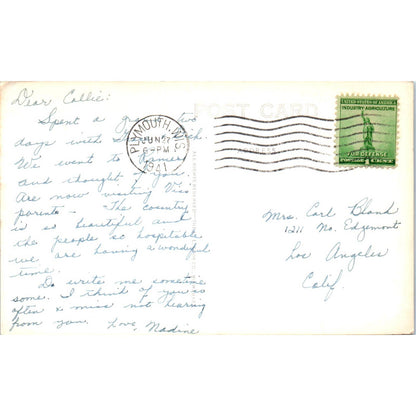 Dear Callie:
Spent a grand two
days with
We went to
and thought of you.
Are now visiting Vic's
parents - The country
is so beautiful and
the people so hospitable
we are having a wonderful
time.
Do write me sometime
some. I think of you so
often & miss not hearing
from you. Love, Nadine
POST CARD
ADDRESS
PLYMOUTH, WIS.
JUN 27
PM
1941
UNITED STATES OF AMERICA
INDUSTRY AGRICULTURE
FOR DEFENSE
1
Mrs. Carl Bland
1211 No. Edgemont
Los Angeles
Calif.